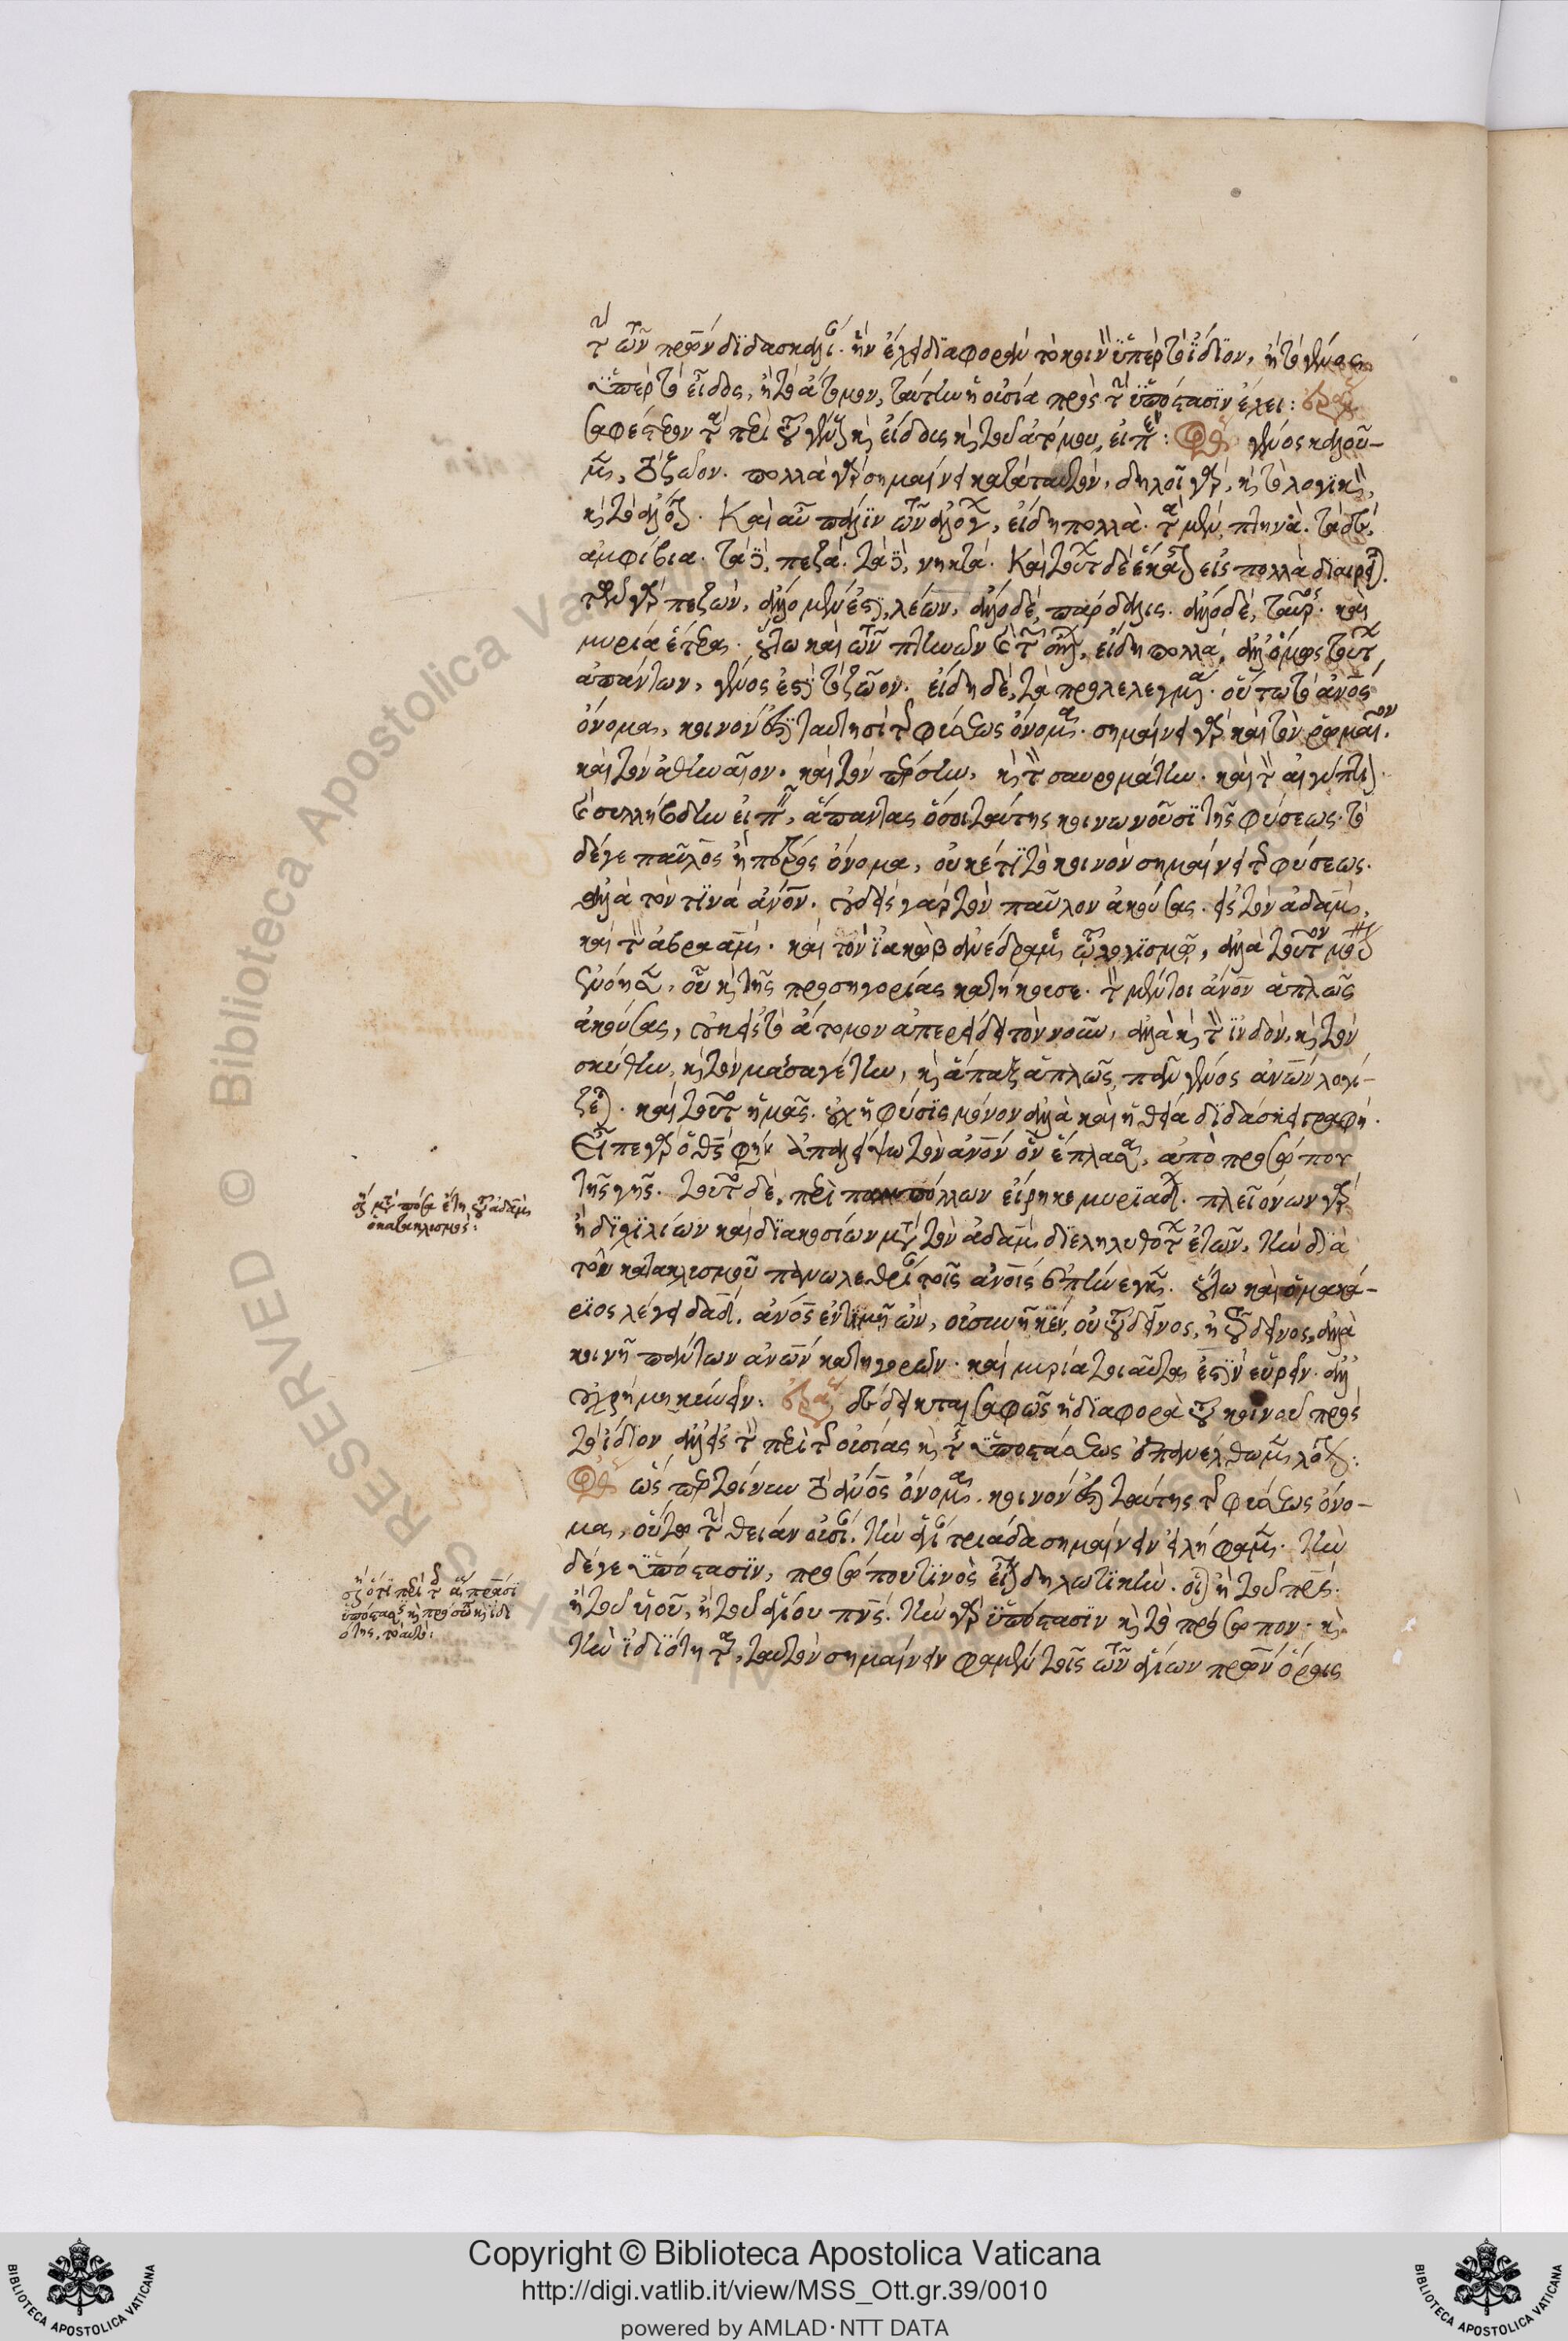 τὴν τῶν πρων διδασκαλίαν. ἣν ἔχει διαφορὰν τὸ κοινὸν ὑπὲρ τὸ ἴδιον, ἢ τὸ γένος
ὑπὲρ τὸ εἶδος, ἢ τὸ ἄτομον, ταύτην ἡ οὐσία πρὸς τὴν ὑπόστασιν ἔχει: ἐραν
σαφέστερον τὰ περὶ τοῦ γένους καὶ εἴδους καὶ τοῦ ἀτόμου, εἰπέ: Ορθ γένος καλοῦ-
μεν, τὸ ζῶον. πολλὰ γὰρ σημαίνει κατὰ ταυτόν. δηλοῖ γὰρ, καὶ τὸ λογικὸν,
καὶ τὸ ἄλογον. Καὶ αὖ πάλιν τῶν ἀλόγων, εἴδη πολλὰ. τὰ μὲν, πτηνὰ. τὰ δὲ,
ἀμφίβια. τὰ δὲ, πεζά. τὰ δὲ, νηκτά. Καὶ τούτων δὲ ἕκαστον εἰς πολλὰ διαιρεῖται.
τῶν γὰρ πεζῶν, ἄλλο μὲν ἐστὶ, λέων, ἄλλο δὲ, πάρδαλις. ἄλλο δὲ, ταῦρος. καὶ
μυρία ἕτερα. οὕτω καὶ τῶν πτηνῶν καὶ τῶν ἄλλων, εἴδη πολλά, ἀλλ' ὅμως τούτων
ἁπάντων, γένος ἐστὶ τὸ ζῶον. εἴδη δὲ, τὰ προλελεγμένα. οὕτω τὸ ἀνος
ὄνομα, κοινὸν ἐστὶ ταυτησὶ τῆς φύσεως ὄνομα. σημαίνει γὰρ καὶ τὸν ῥωμαῖον.
καὶ τὸν ἀθηναῖον. καὶ τὸν πέρσην, καὶ τὸν σαυρομάτην. καὶ τὸν αἰγύπτιον.
καὶ συλλήβδην εἰπεῖν, ἅπαντας ὅσοι ταύτης κοινωνοῦσι τῆς φύσεως. τὸ
δέ γε παῦλος ἢ πέτρος ὄνομα, οὐκέτι τὸ κοινὸν σημαίνει τῆς φύσεως.
ἀλλὰ τὸν τινὰ ἀνον. οὐδεὶς γὰρ τὸν παῦλον ἀκούσας. εἰς τὸν ἀδὰμ,
καὶ τὸν ἀβραὰμ. καὶ τὸν ἰακὼβ ἀνέδραμε τῷ λογισμῷ, ἀλλὰ τοῦτον μόνον
ἐνόησεν, οὗ καὶ τῆς προσηγορίας κατήκουσε. τὸν μέντοι ἀνον ἁπλῶς
ἀκούσας, οὐκ εἰς τὸ ἄτομον ἀπερείδει τὸν νοῦν, ἀλλὰ καὶ τὸν ἰνδὸν, καὶ τὸν
σκύθην, καὶ τὸν μασαγέτην, καὶ ἅπαξ ἁπλῶς, πᾶν γένος ἀνων λογί-
ζεται. καὶ τοῦτο ἡμᾶς. οὐχ ἡ φύσις μόνον ἀλλὰ καὶ ἡ θεία διδάσκει γραφή.
Εἶπε γὰρ ὁ θς φησὶν ἀπαλείψω τὸν ἀνον ὃν ἔπλασα, ἀπὸ προσώπου
τῆς γῆς. τοῦτο δὲ, περὶ παμπόλλων εἴρηκε μυριάδων. πλειόνων γὰρ
ἢ διχιλίων καὶ διακοσίων μετὰ τὸν ἀδὰμ διεληλυθότων ἐτῶν, τὴν διὰ
τοῦ κατακλυσμοῦ πανωλεθρίαν τοῖς ἀνοις ἐπήνεγκεν. οὕτω καὶ ὁ μακά-
ριος λέγει δαδ. ἀνος ἐν τιμῆ ὢν, οὐ συνῆκεν, οὐ τοῦ δεῖνος, ἢ τοῦ δεῖνος, ἀλλὰ
κοινῆ πάντων ἀνων κατηγορῶν. καὶ μυρία τοιαῦτα ἐστὶν εὑρεῖν. ἀλλ'
οὐ χρὴ μηκύνειν: ἐραν δέδεικται σαφῶς ἡ διαφορὰ τοῦ κοινοῦ πρὸς
τὸ ἴδιον ἀλλ' εἰς τὸν περὶ τῆς οὐσίας καὶ τῆς ὑποστάσεως ἐπανέλθωμεν λόγον:
Ορθ ὥσπερ τοίνυν τὸ ἀνος ὄνομα. κοινὸν ἐστὶ ταύτης τῆς φύσεως ὄνο-
μα, οὕτω τὴν θείαν οὐσίαν. τὴν ἁγίαν τριάδα σημαίνειν εἰλήφαμεν. τὴν
δέ γε ὑπόστασιν, προσώπου τινὸς εἶναι δηλωτικὴν. οἷον ἢ τοῦ πρς.
ἢ τοῦ υἱοῦ, ἢ τοῦ ἁγίου πνς. τὴν γὰρ ὑπόστασιν καὶ τὸ πρόσωπον. καὶ
τὴν ἰδιότητα, ταυτὸν σημαίνειν φαμὲν τοῖς τῶν ἁγίων πρων ὅροις
ὅτι μετὰ πόσα ἔτη τοῦ ἀδὰμ
ὁ κατακλυσμός:
ὅτι περὶ
ὑπόστασις καὶ πρόσωπον καὶ ἰδι
ότης, ταυτό:
Copyright © Biblioteca Apostolica Vaticana
http://digi.vatlib.it/view/MSS_Ott.gr.39/0010
powered by AMLAD · NTT DATA
BIBLIOTECA APOSTOLICA VATICANA
BIBLIOTECA APOSTOLICA VATICANA